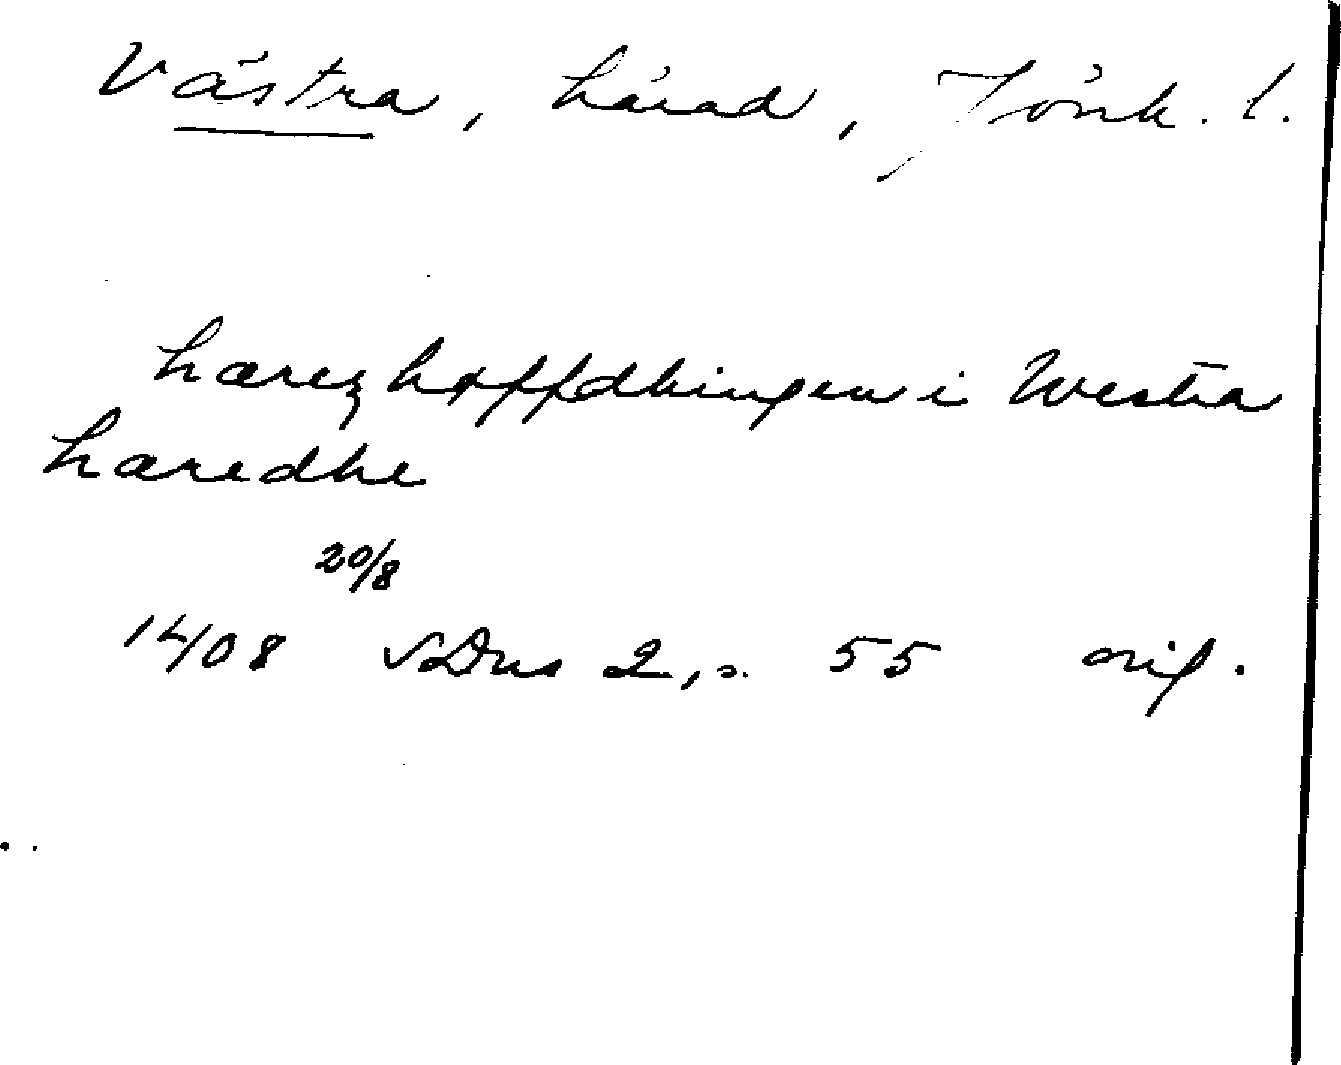 Västra, härad, Jönk. l.
hærezhøffdhingen i Westra
hæredhe
20/8
1408 SDns 2, s. 55 orig.